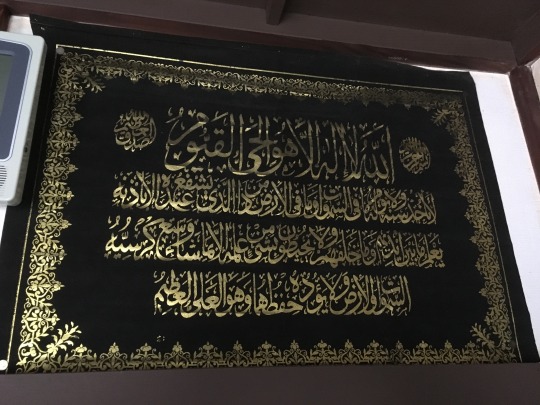 الله لا اله الا هو الحي القيوم
لا تأخذه سنة ولا نوم له ما في السموات وما في الارض من ذا الذي يشفع عنده الا باذنه
يعلم ما بين ايديهم وما خلفهم ولا يحيطون بشيء من علمه الا بما شاء وسع كرسيه
السموات والارض ولا يؤده حفظهما وهو العلي العظيم